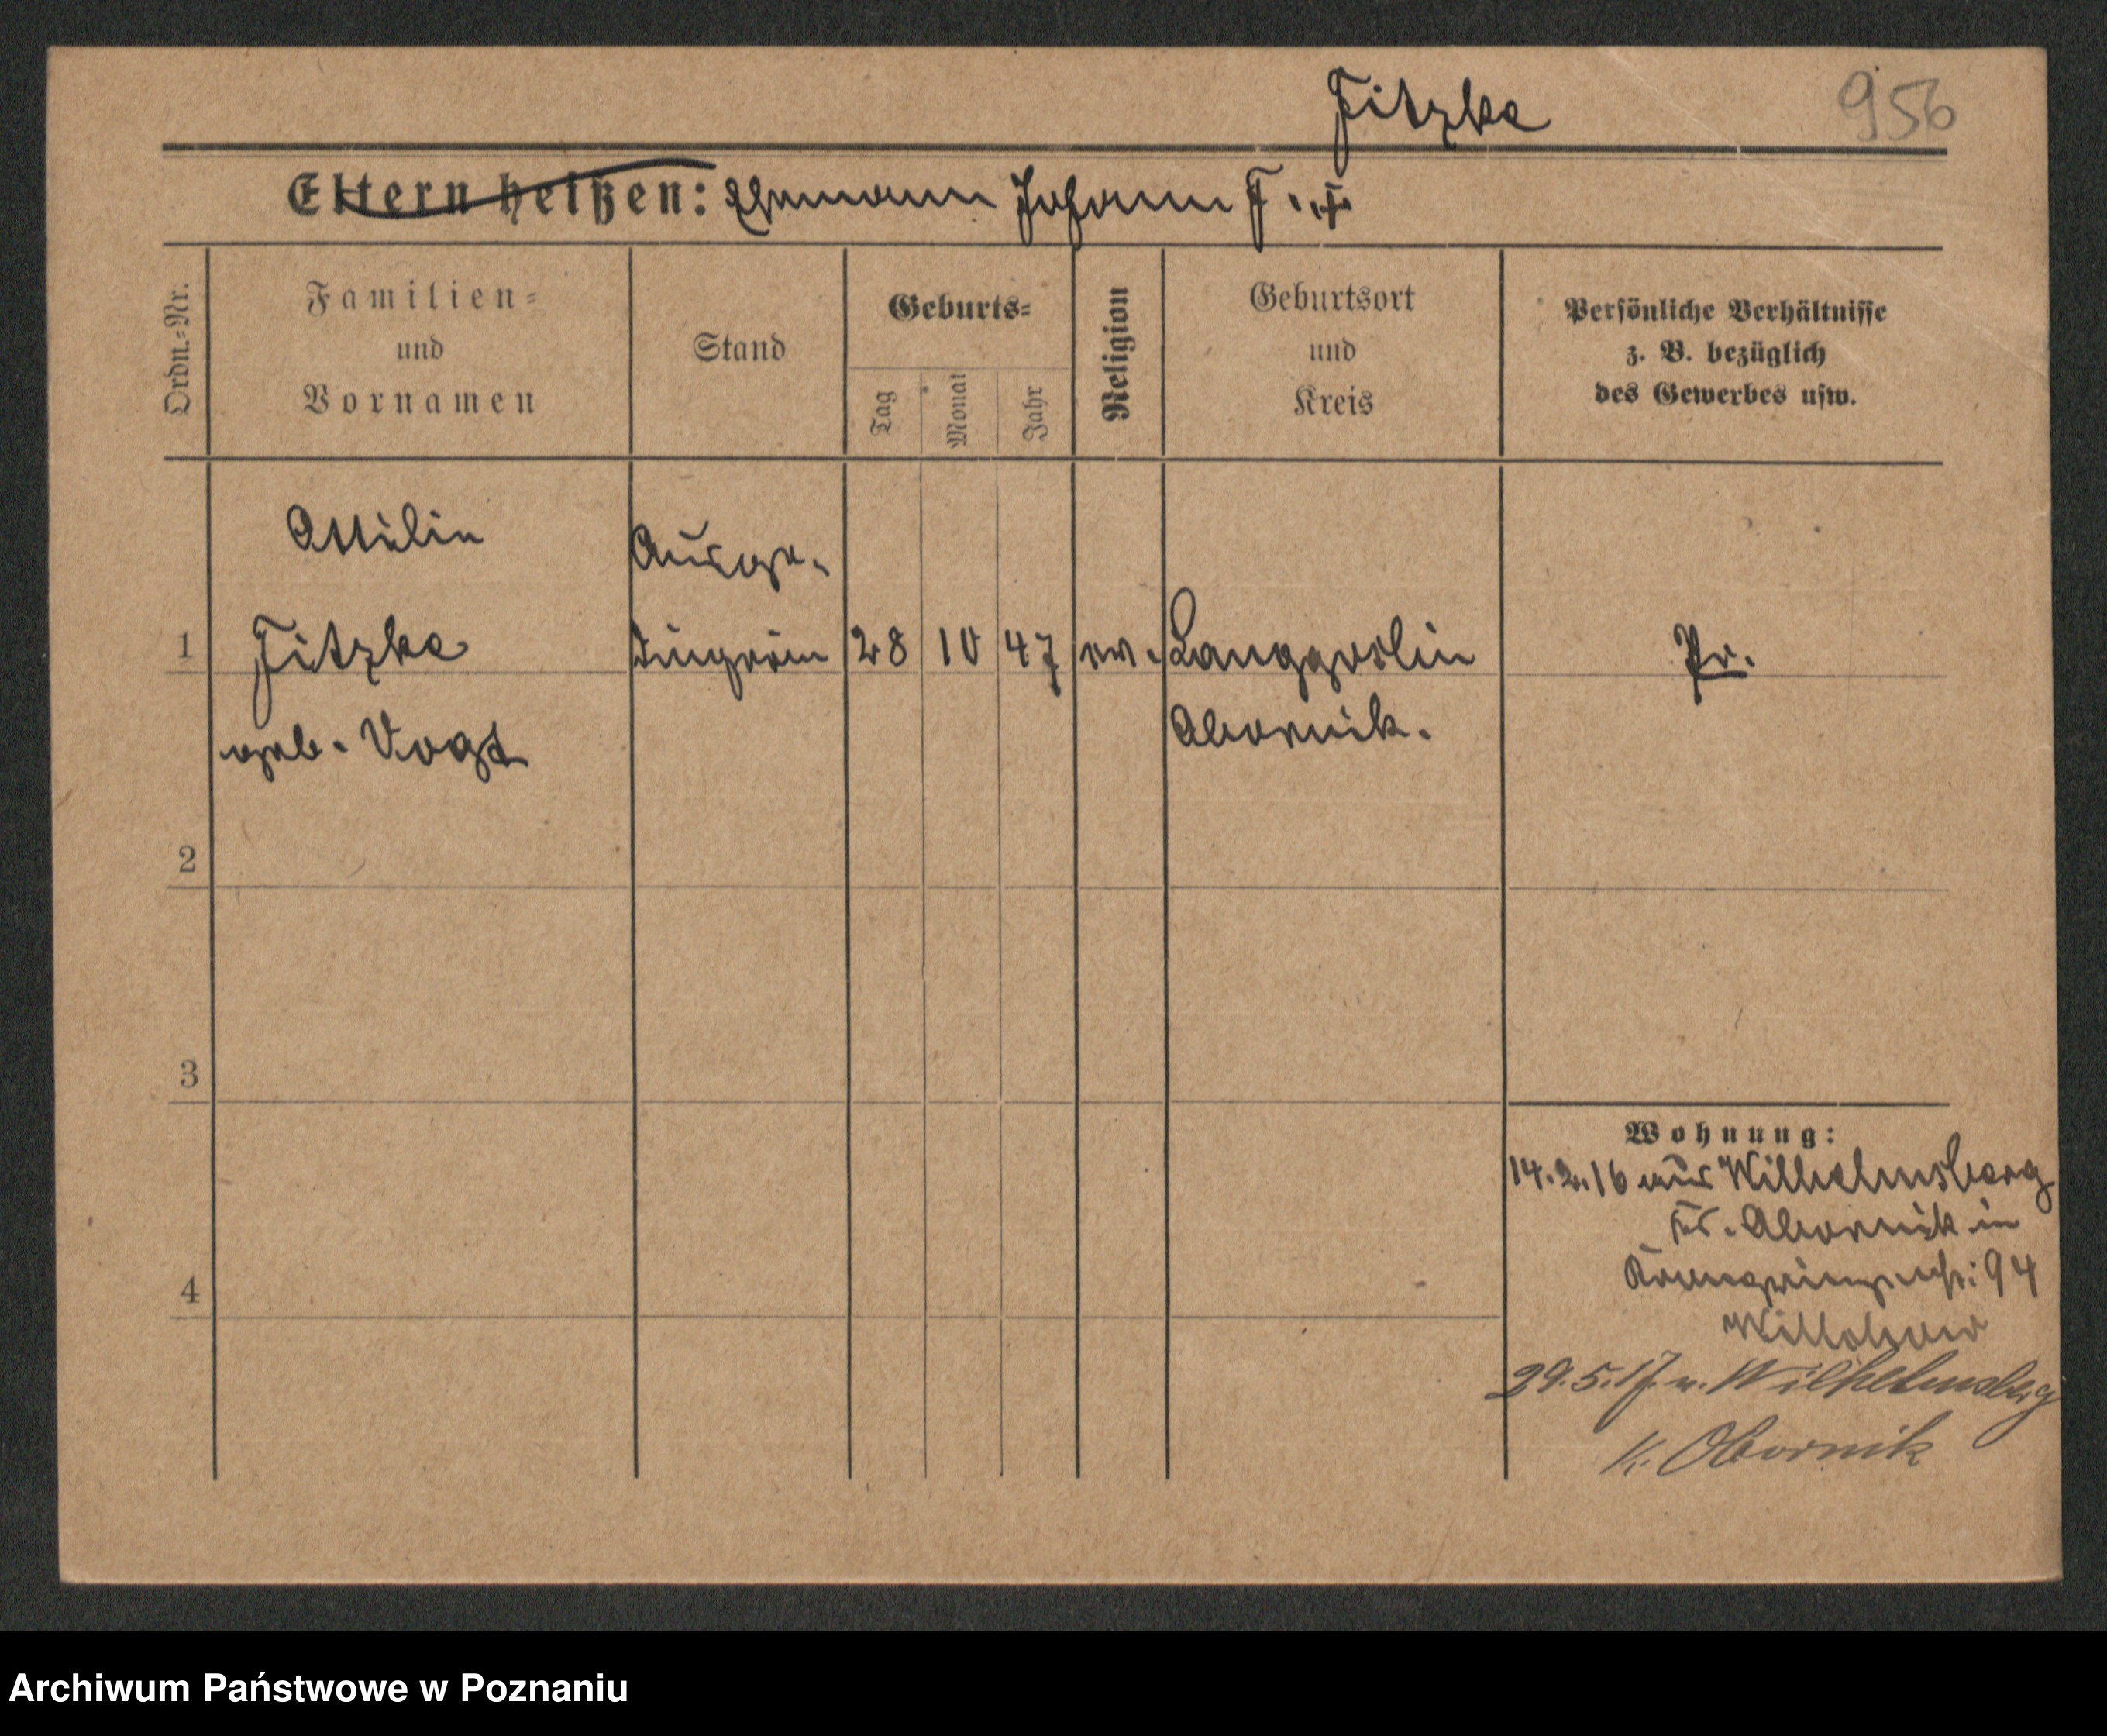 Fitzke
956
Eltern heißen: Ehemann Johann F. †
Ordn.-Nr.
Familien-
und
Vornamen
Stand
Geburts-
Tag
Monat
Jahr
Religion
Geburtsort
und
Kreis
Persönliche Verhältnisse
z. B. bezüglich
des Gewerbes usw.
Ottilie
Ausge-
1 Fitzke dingerin 28 10 47 ev. Langgoslin Pr.
geb. Vogt Obornik.
2
3
4
Wohnung:
14.2.16 aus Wilhelmsberg
Kr. Obornik in
Kronprinzenstr: 94
29.5.17 n. Wilhelmsberg
K. Obornik
Archiwum Państwowe w Poznaniu